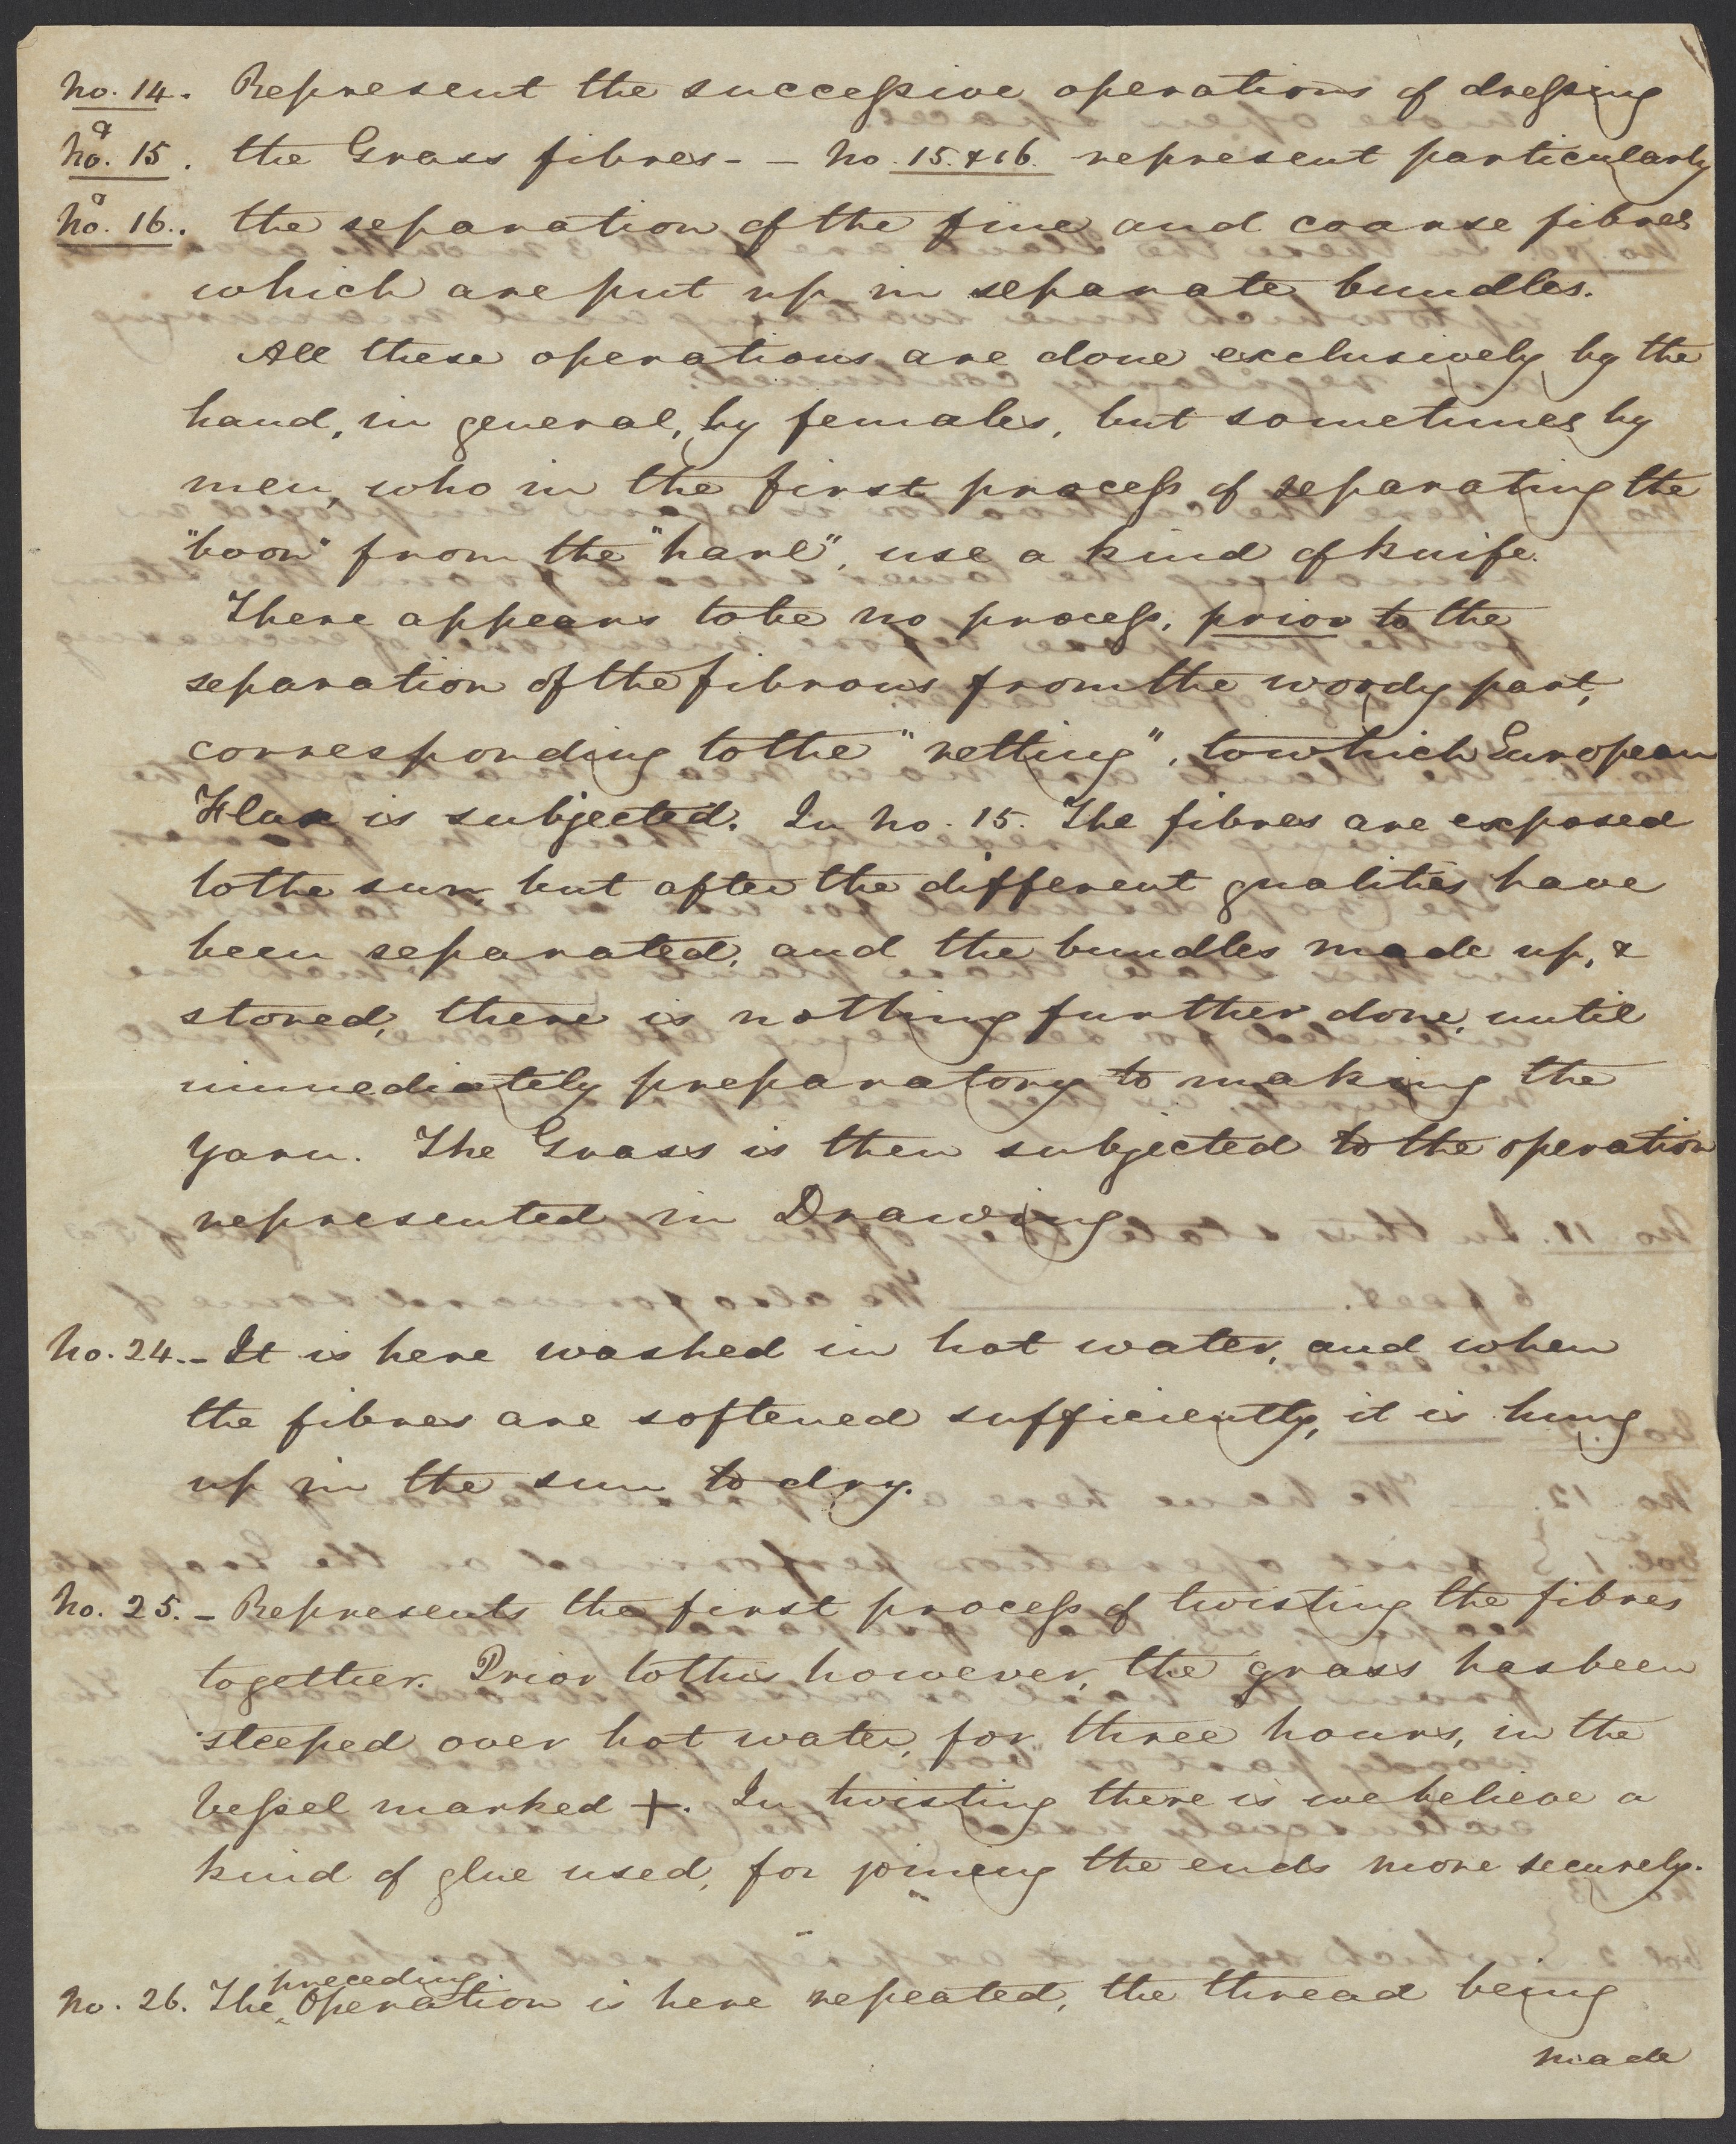 No. 14. Represent the successive operations of dressing
&
No. 15. the Grass fibres - - No. 15. & 16. represent particularly
&
No. 16. the separation of the fine and coarse fibres
which are put up in separate bundles.
All these operations are done exclusively by the
hand, in general, by females, but sometimes by
men, who in the first process of separating the
"boon" from the "harl", use a kind of knife.
There appears to be no process, prior to the
separation of the fibrous from the woody part,
corresponding to the "retting", to which European
Flax is subjected. In No. 15. The fibres are exposed
to the sun, but after the different qualities have
been separated, and the bundles made up, &
stored, there is nothing further done, until
immediately preparatory to making the
yarn. The Grass is then subjected to the operation
represented in Drawing
No. 24. - It is here washed in hot water, and when
the fibres are softened sufficiently, it is hung
up in the sun to dry.
No. 25. - Represents the first process of twisting the fibres
together. Prior to this however, the grass has been
steeped over hot water, for three hours, in the
vessel marked +. In twisting there is we believe a
kind of glue used, for joining the ends more securely.
preceding
No. 26. The ^ Operation is here repeated, the thread being
made